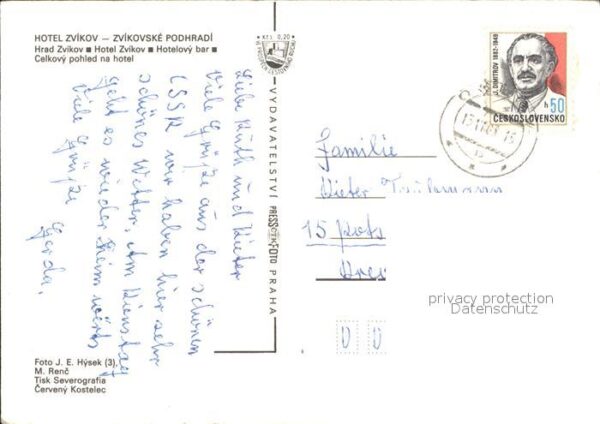 HOTEL ZVÍKOV — ZVÍKOVSKÉ PODHRADÍ
Hrad Zvíkov ■ Hotel Zvíkov ■ Hotelový bar ■
Celkový pohled na hotel
Kčs 0,20
Liebe Ruth und Dieter
Viele Grüße aus der schönen
CSSR wir haben hier sehr
schönes Wetter, Am Dienstag
geht es wieder Heimwärts
Viele Grüße
Gerda.
Foto J. E. Hýsek (3),
M. Renč
Tisk Severografia
Červený Kostelec
VYDAVATELSTVÍ PRESSFOTO PRAHA
J. DIMITROV 1882-1949
h 50
ČESKOSLOVENSKO
Familie
Dieter
privacy protection
Datenschutz